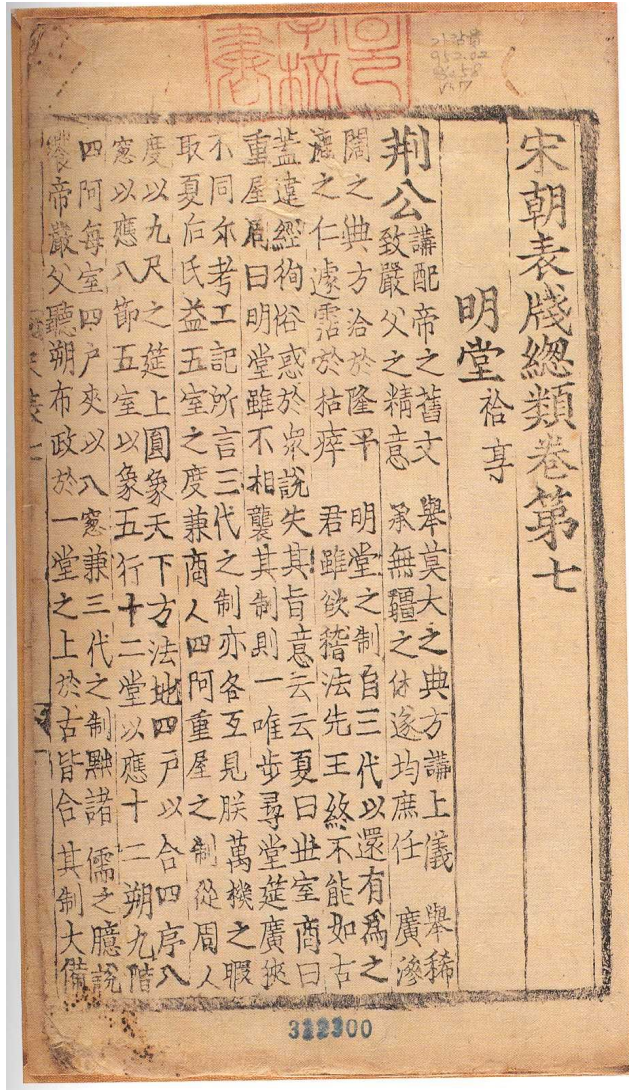 宋朝表牋總類卷第七
明堂 祫享
荆公 講配帝之舊文 舉莫大之典方講上儀 舉稀
致嚴父之精意 承無疆之休遂均庶任 廣滲
闊之典方洽於隆平 明堂之制自三代以還有爲之
漉之仁遽霑於枯瘁 君雖欲稽法先王終不能如古
盖違經徇俗惑於衆説失其旨意云云夏曰世室商曰
重屋周曰明堂雖不相襲其制則一唯步尋堂筵廣狹
不同尔考工記所言三代之制亦各互見朕萬機之暇
取夏后氏益五室之度兼商人四阿重屋之制從周人
度以九尺之筵上圓象天下方法地四戸以合四序八
窓以應八節五室以象五行十二堂以應十二朔九階
四阿每室四戸夾以八窓兼三代之制黜諸儒之臆説
帝嚴父聽朔布政於一堂之上於古皆合 其制大備